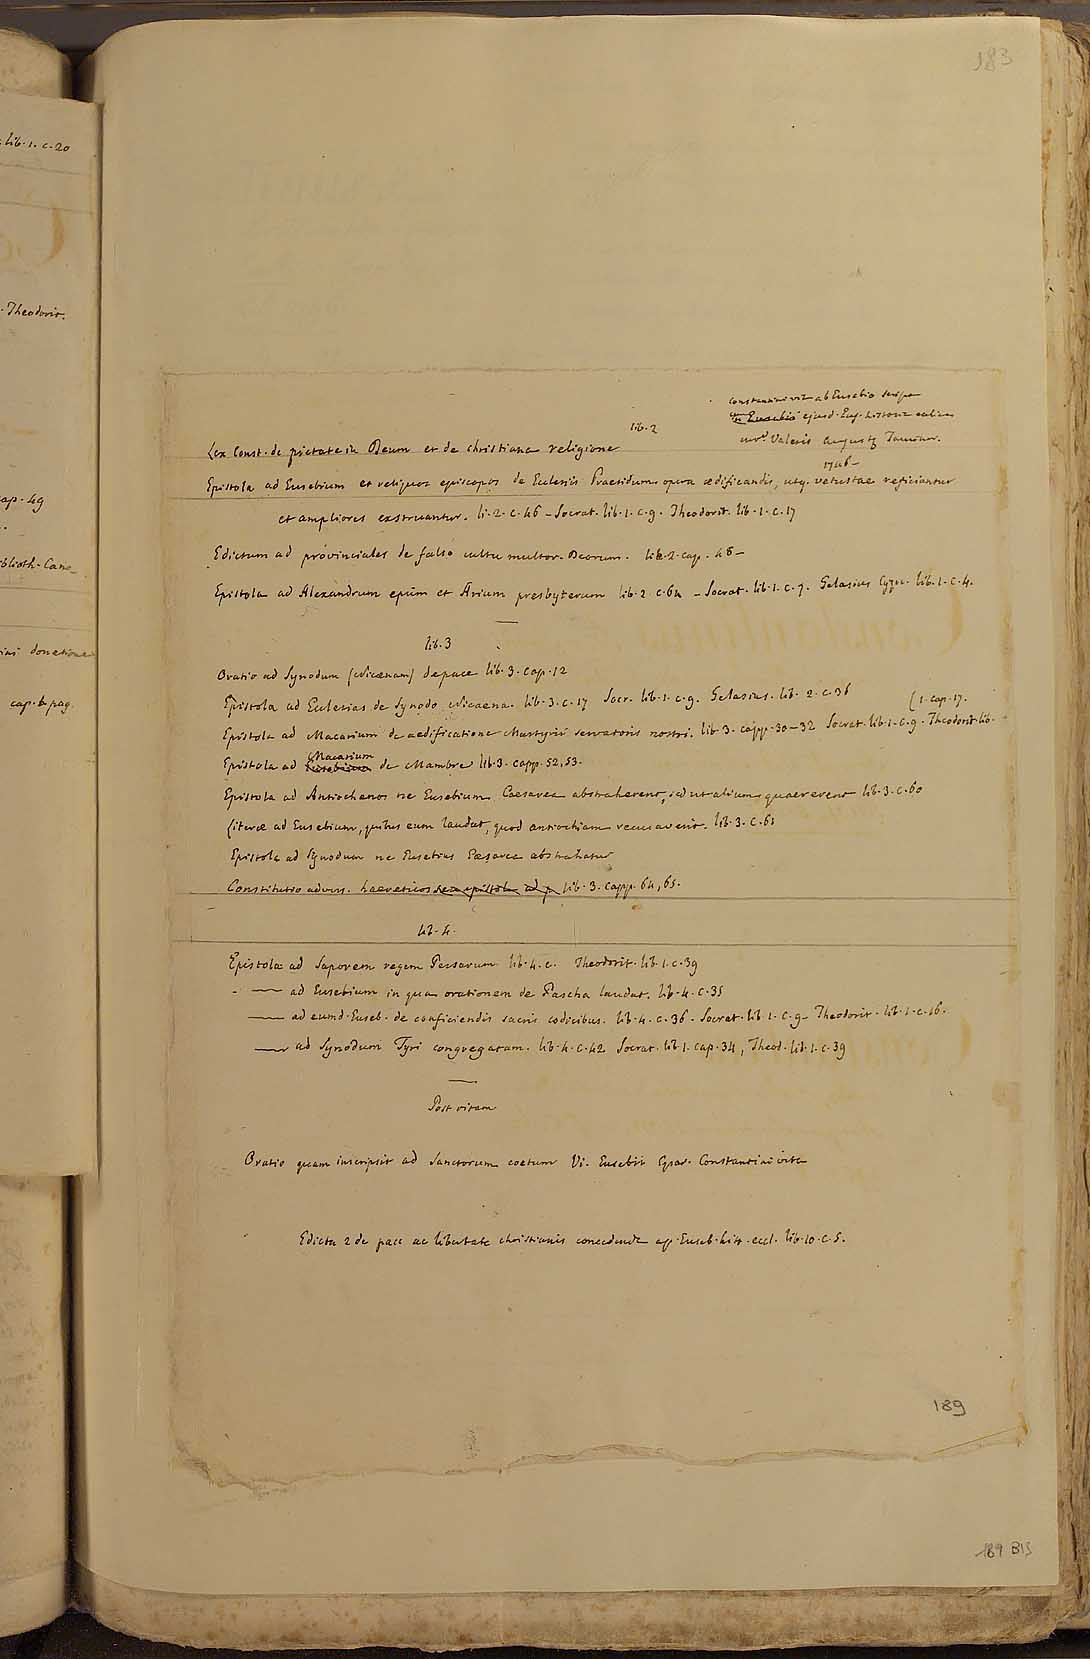 183
lib. 1. c. 20
Theodorit.
cap. 49
donatione
cap. 6 pag.
Constantini vita ab Eusebio script
Eusebio ejusd. Eus. historiæ
Valesii Augustæ Taurinor.
1746
lib. 2
Lex Const. de pietate in Deum et de christiana religione
Epistola ad Eusebium et reliquos episcopos de Eclesiis Praesidum opera ædificandis, utq. vetustae reficiantur
et ampliores exstruantur. li. 2. c. 46 - Socrat. lib. 1. c. 9. Theodorit. lib. 1. c. 17
Edictum ad provinciales de falso cultu multor. Deorum. lib. 2. cap. 46 -
Epistola ad Alexandrum epum et Arium presbyterum lib. 2 c. 64 - Socrat. lib. 1. c. 7. Gelasius Cyzic. lib. 1. c. 4.
lib. 3
Oratio ad Synodum (Nicænam) de pace lib. 3. cap. 12
Epistola ad Eclesias de Synodo Nicaena. lib. 3. c. 17 Socr. lib. 1. c. 9. Gelasius. lib. 2. c. 36
(1. cap. 17.
Epistola ad Macarium de aedificatione Martyrii servatoris nostri. lib. 3. capp. 30-32 Socrat. lib. 1. c. 9. Theodorit lib.
Macarium
Epistola ad Eusebium de Mambre lib. 3. capp. 52, 53.
Epistola ad Antiochenos ne Eusebium Caesarea abstraherent, sed ut alium quaererent lib. 3. c. 60
Literæ ad Eusebium, quibus eum laudat, quod antiochiam recusaverit. lib. 3. c. 61
Epistola ad Synodum ne Eusebius Cæsarea abstrahatur
Constitutio advers. haereticos seu epistola ad lib. 3. capp. 64, 65.
lib. 4.
Epistola ad Saporem regem Persarum lib. 4. c. Theodorit. lib. 1. c. 39
— ad Eusebium in qua orationem de Pascha laudat. lib. 4. c. 35
— ad eumd. Euseb. de conficiendis sacris codicibus. lib. 4. c. 36. Socrat. lib. 1. c. 9 - Theodorit. lib. 1. c. 16.
— ad Synodum Tyri congregatam. lib. 4. c. 42 Socrat. lib. 1. cap. 34, Theod. lib. 1. c. 39
Post vitam
Oratio quam inscripsit ad Sanctorum coetum Vi. Eusebii Constantini vita
Edicta 2 de pace ac libertate christianis concedenda ap. Euseb. hist. eccl. lib. 10. c. 5.
189
189 BIS